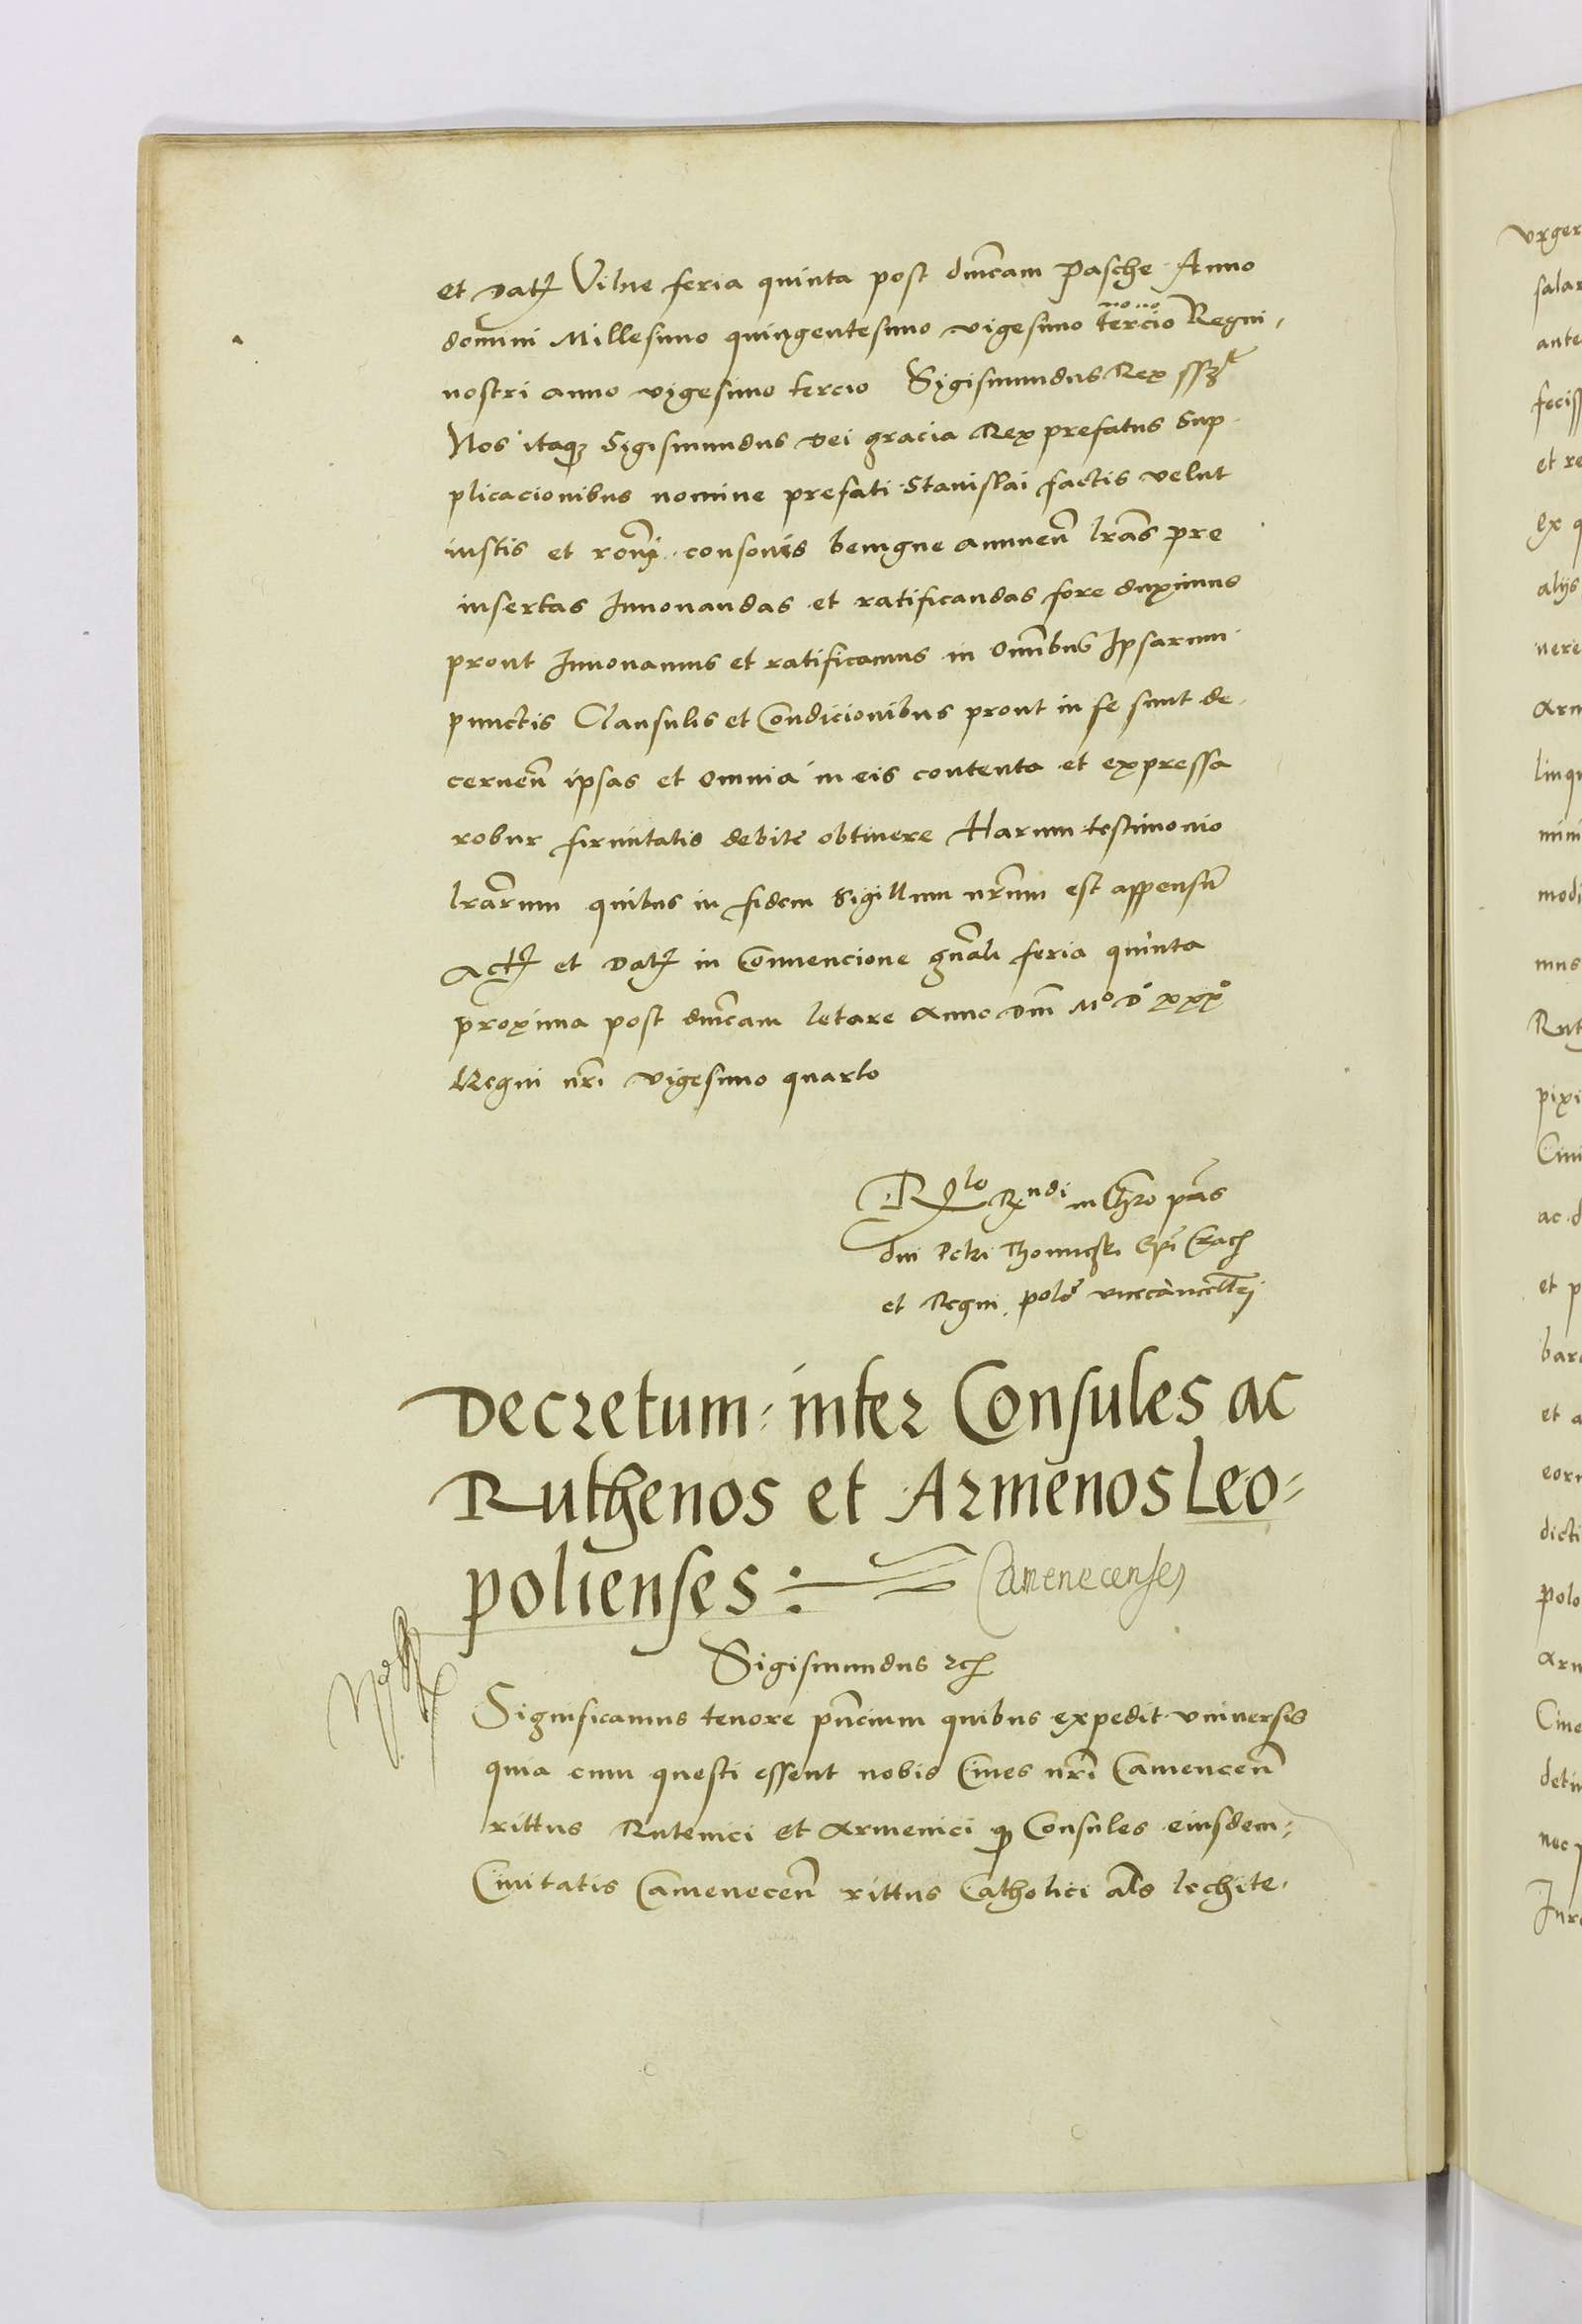 et Dat Vilne feria quinta post dnicam Pasche Anno
domini Millesimo quingentesimo vigesimo tercio nono Regni
nostri anno vigesimo tercio Sigismundus Rex sst
Nos itaq Sigismundus Dei gracia Rex prefatus Sup
plicacionibus nomine prefati Stanislai factis velut
iustis et roni consonis benigne annuen lras pre
insertas Innouandas et ratificandas fore duximus
prout Innouamus et ratificamus in Omnibus Ipsarum
punctis Clausulis et Condicionibus prout in se sunt de
cernen ipsas et omnia in eis contenta et expressa
robur firmitatis debite obtinere Harum testimonio
lrarum quibus in fidem Sigillum nrum est appensu
Act et Dat in Conuencione gnali feria quinta
proxima post dnicam letare Anno Dni Mo D xxxo
Regni nri vigesimo quarto
Rlo Rndi in Chro pris
dni Petri Thomiczki Epi Crac
et Regni polo vicecancellrj
Decretum inter Consules ac
Ruthenos et Armenos Leo-
polienses Camenecenses
Sigismundus rc
Significamus tenore pncium quibus expedit vniuersis
quia cum questi essent nobis Ciues nri Camenecen
rittus Rutenici et Armenici q Consules eiusdem
Ciuitatis Camenecen rittus Catholici als lechite